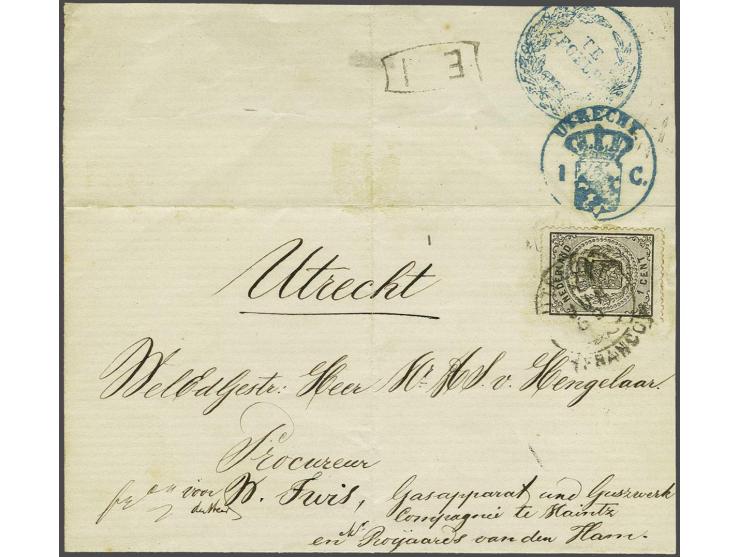 TE
ZEGELEN
E I
UTRECHT.
1 C.
NEDERLAND
1 CENT
FRANCO
Utrecht
WelEdGestr: Heer Mr. A S. v. Hengelaar.
Procureur
voor W. Twis, Gasapparat und Gusswerk
Compagnie te Maintz
en Mr. Royaards van den Ham.